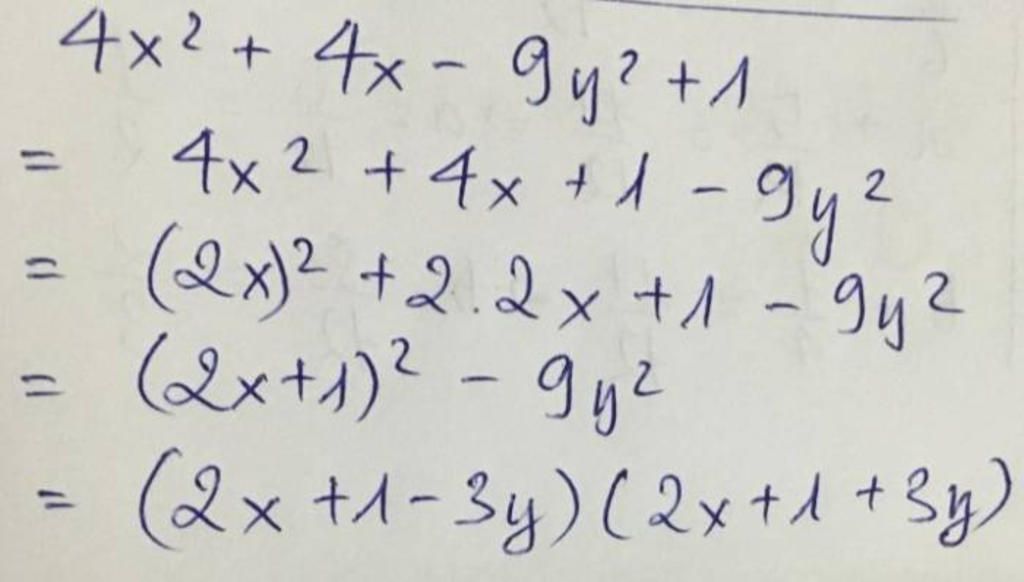 4x² + 4x - 9y² + 1
= 4x² + 4x + 1 - 9y²
= (2x)² + 2.2x + 1 - 9y²
= (2x+1)² - 9y²
= (2x + 1 - 3y)(2x + 1 + 3y)